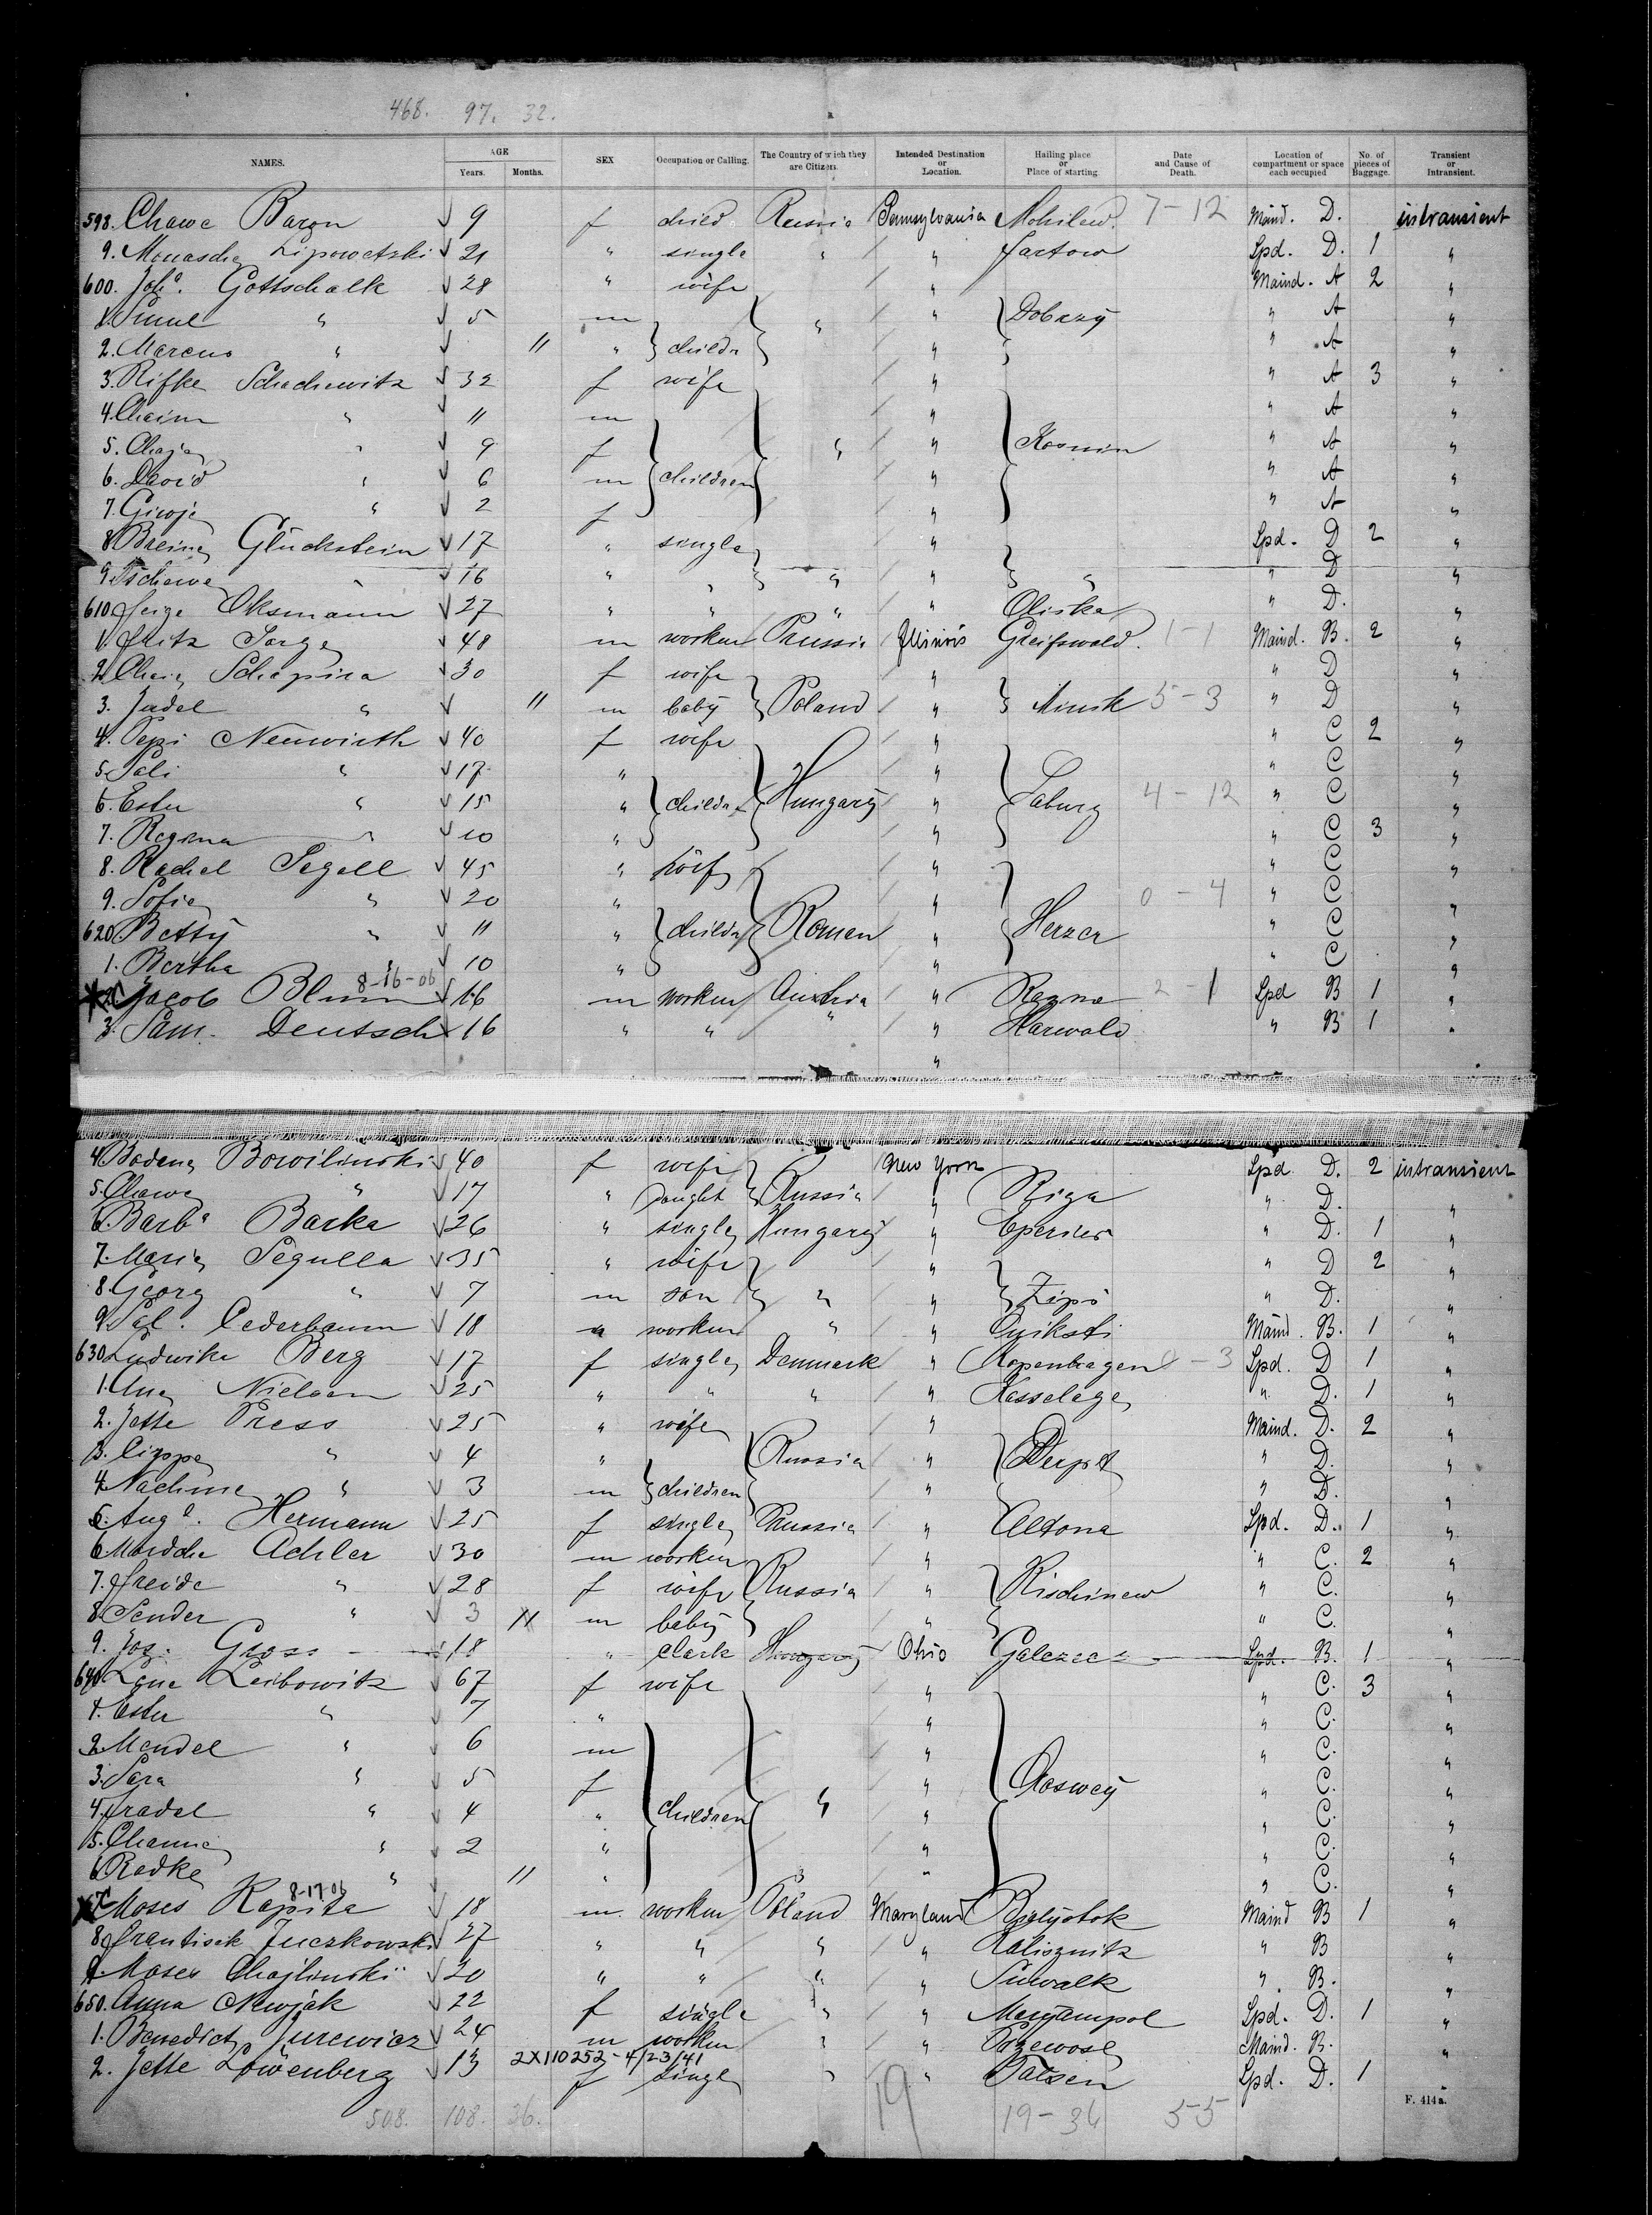 468. 97. 32.
NAMES. AGE Years. Months. SEX Occupation or Calling. The Country of wich they are Citizen. Intended Destination or Location. Hailing place or Place of starting. Date and Cause of Death. Location of compartment or space each occupied No. of pieces of Baggage. Transient or Intransient.
598. Chawe Baron 9 f child Russia Pennsylvania Mohilew. 7-12 Maind. D. intransient
9. Monasche Lipowetzki 21 " single " " Jartow Spd. D. 1 "
600. Joha. Gottschalk 28 " wife " Maind. A 2 "
1. Smul " 5 m " " Dobrzy " A "
2. Marcus " 11 " childr " " A "
3. Rifke Schachewitz 32 f wife " " A 3 "
4. Chaim " 11 m " " A "
5. Chaja " 9 f " " Kosnin " A "
6. David " 6 m children " " A "
7. " 2 f " " A "
8 Breine Glückstein 17 " single " Spd. D 2 "
9 Tschawe " 16 " " " " " " D "
610 Feige Oksmann 27 " " " " Oliska " D. "
1. Fritz Sorge 48 m worker Prussia Illinois Greifswald. 1-1 Maind. B. 2 "
2. Schapira 30 f wife " " D "
3. Judel " 11 m baby Poland " Minsk 5-3 " D "
4. Pepi Neuwirth 40 f wife " " C 2 "
5. Sali " 17 " " " C "
6. Ester " 15 " childr Hungary " Saburg 4-12 " C "
7. Regina " 10 " " " C 3 "
8. Rachel Segall 45 " wife " " C "
9. Sofie " 20 " " 0-4 " C "
620 Betty " 11 " childr Roman " Herzer " C "
1. Bertha 10 " " " C "
8-16-06
2. Jacob Blum 16 m worker Austria " Razna 2-1 Spd B 1 "
3. Sam. Deutsch 16 " " " " Harwald " B 1 "
"
4 Bowilinski 40 f wife New York Spd. D. 2 intransient
5. Chawe " 17 " Daught Russia " Riga " D. "
6. Barba Barka 26 " single Hungary " Eperies " D. 1 "
7. Maria Segulla 35 " wife " " D 2 "
8. Georg " 7 m son " " Zips " D. "
9. Sal. Cederbaum 18 " worker " " Maind. B. 1 "
630 Ludwika Berg 17 f single Denmark " Kopenhagen 0-3 Spd. D 1 "
1. Ane Nielsen 25 " " " " " D. 1 "
2. Jette Press 25 " wife " Maind. D. 2 "
3. Cippe " 4 " Russia " Derpt " D. "
4. Nachme " 3 m children " " D. "
5. Auge. Hermann 25 f single Prussia " Altona Spd. D. 1 "
6 Mordche Adler 30 m worker " " C. 2 "
7. Freide " 28 f wife Russia " Kischinew " C. "
8. Sender " 3 11 m baby " " C. "
9. Jos. Gross 18 " Clerk Hungary Ohio Galezecz Spd. B. 1 "
640. Lene Leibowitz 67 f wife " " C. 3 "
1. Ester " 7 " " " C. "
2. Mendel " 6 m " " C. "
3. Sara " 5 f " " C. "
4. Fradel " 4 " children " " " C. "
5. Channe " 2 " " " C. "
6 Radke " 11 " " " C. "
8-17-06
7 Moses Kapita 18 m worker Poland Maryland Bialystok Maind B 1 "
8 Frantisek Juczkowski 27 " " " " Kalisznitz " B "
9. Moses Chajlinski 20 " " " " Suwalk " B. "
650. Anna Newjak 22 f single " " Meryampol Spd. D. 1 "
1. Benedict Jurewicz 24 m worker " " Maind. B. "
2X110252-4/23/41
2. Jette Löwenberg 13 f single " " Talsen Spd. D. 1 "
508. 108. 36. 19 19-36 55 F. 414a.